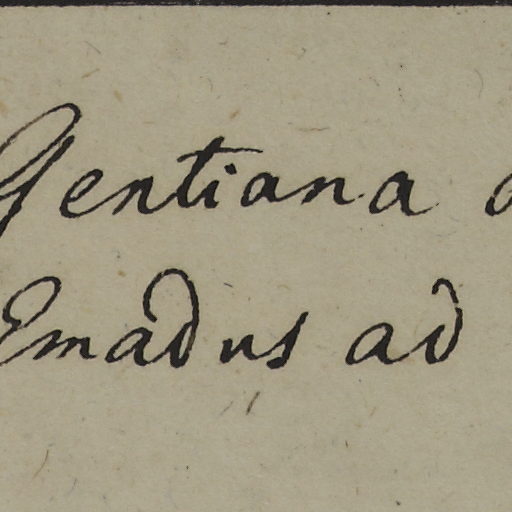 Gentiana
Emadus ad